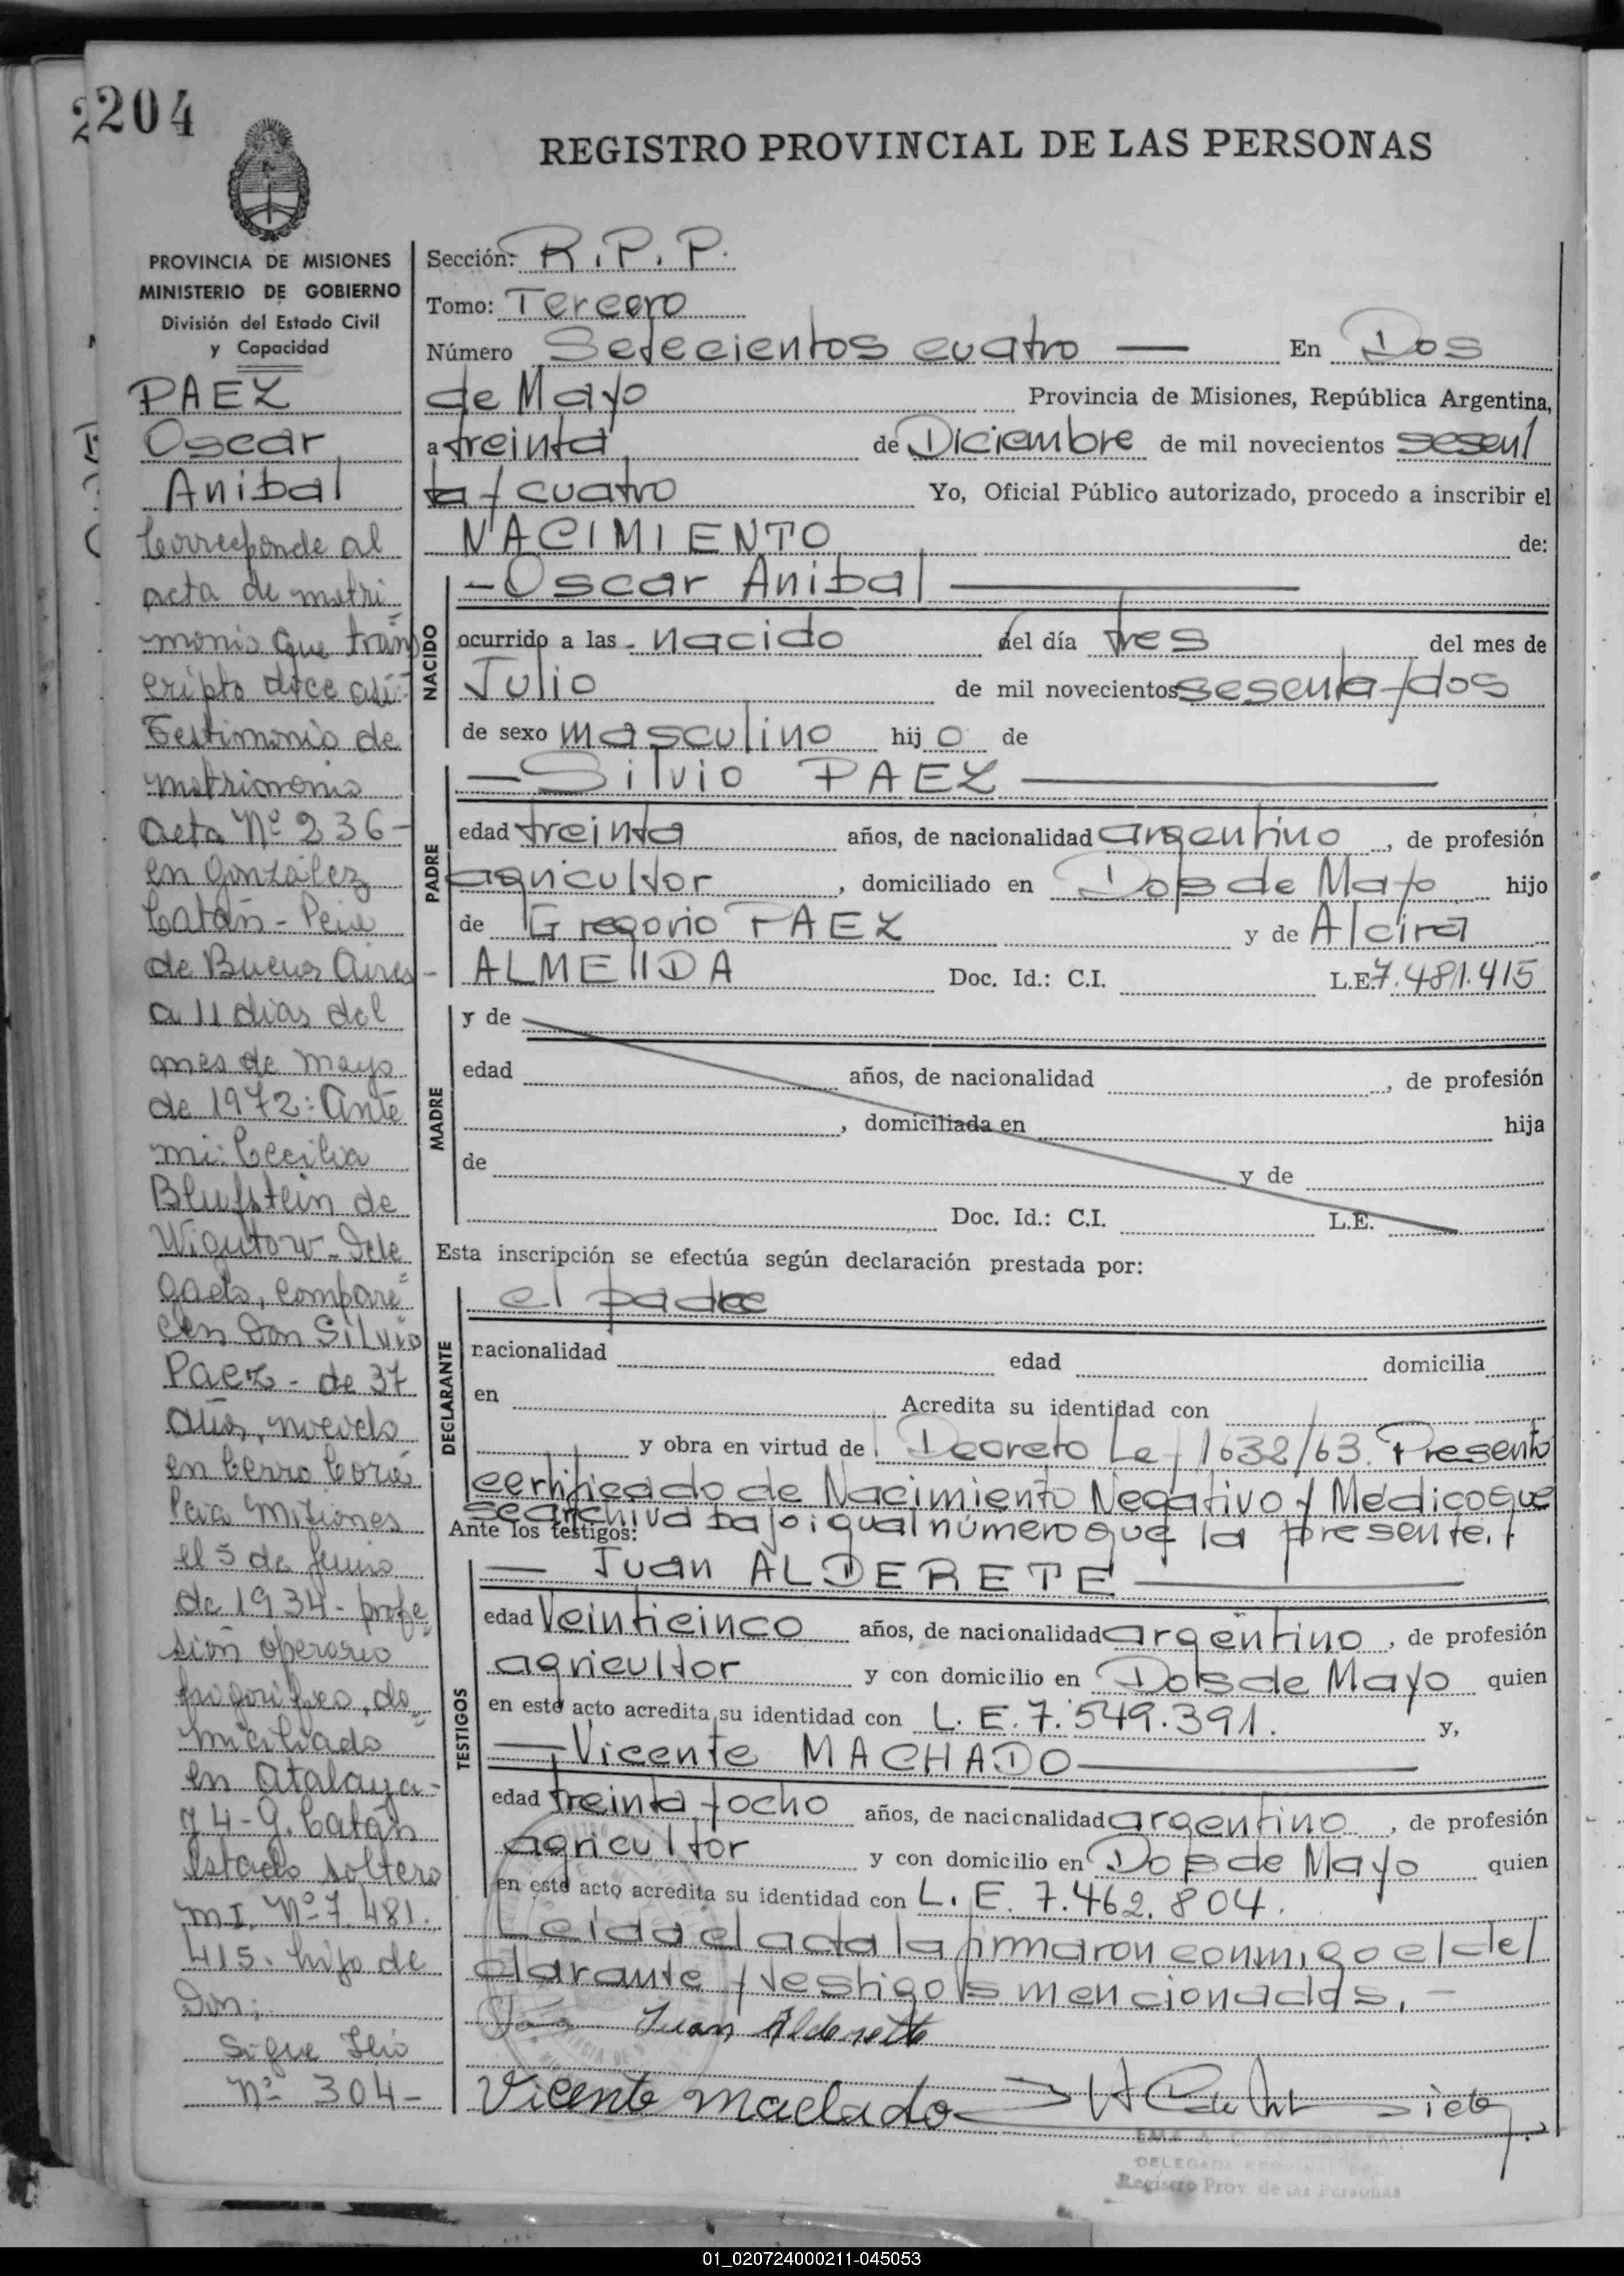 204
REGISTRO PROVINCIAL DE LAS PERSONAS
PROVINCIA DE MISIONES
MINISTERIO DE GOBIERNO
División del Estado Civil
y Capacidad
PAEZ
Oscar
Anibal
Corresponde al
acta de matri=
monio que trans
cripto dice así:
Testimonio de
matrimonio
acta Nº 236-
en González
Catán - Pcia
de Buenos Aires -
a 11 dias del
mes de mayo
de 1972: Ante
mi: Cecilia
Blufstein de
Dele=
gado, compare
cen Don Silvio
Paez - de 37
años, nacido
en Cerro Corá
Pcia Misiones
el 5 de Junio
de 1934 - profe=
sión operario
frigorifico, do=
miciliado
en Atalaya -
74 - G. Catán
Estado soltero
M.I. Nº 7.481.
415. hijo de
Don:
Sigue folio
Nº 304-
Sección: R.P.P.
Tomo: Tercero
Número Setecientos cuatro — En Dos
de Mayo Provincia de Misiones, República Argentina,
a treinta de Diciembre de mil novecientos sesent
ta y cuatro Yo, Oficial Público autorizado, procedo a inscribir el
NACIMIENTO de:
NACIDO
— Oscar Anibal —
ocurrido a las nacido del día tres del mes de
Julio de mil novecientos sesenta y dos
de sexo masculino hijo de
PADRE
— Silvio PAEZ —
edad treinta años, de nacionalidad argentino, de profesión
agricultor, domiciliado en Dos de Mayo hijo
de Gregorio PAEZ y de Alcira
ALMEIDA Doc. Id.: C.I. L.E. 7.481.415
MADRE
y de
edad años, de nacionalidad , de profesión
, domiciliada en hija
de y de
Doc. Id.: C.I. L.E.
Esta inscripción se efectúa según declaración prestada por:
DECLARANTE
el padre
nacionalidad edad domicilia
en Acredita su identidad con
y obra en virtud de Decreto Ley 1632/63. Presento
certificado de Nacimiento Negativo y Medico que
se archiva bajo igual número que la presente.
Ante los testigos:
TESTIGOS
— Juan ALDERETE —
edad Veinticinco años, de nacionalidad argentino, de profesión
agricultor y con domicilio en Dos de Mayo quien
en este acto acredita su identidad con L.E. 7.549.391. y,
— Vicente MACHADO —
edad treinta y ocho años, de nacionalidad argentino, de profesión
agricultor y con domicilio en Dos de Mayo quien
en este acto acredita su identidad con L.E. 7.462.804.
Leida el acta la firmaron conmigo el de
clarante y testigos mencionados. -
Juan Alderette
Vicente Machado
DELEGADA
Registro Prov. de las Personas
01_020724000211-045053